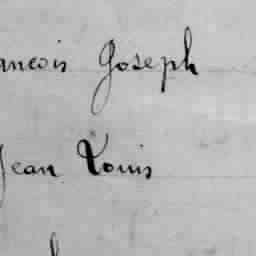 ancois Joseph
Jean Louis